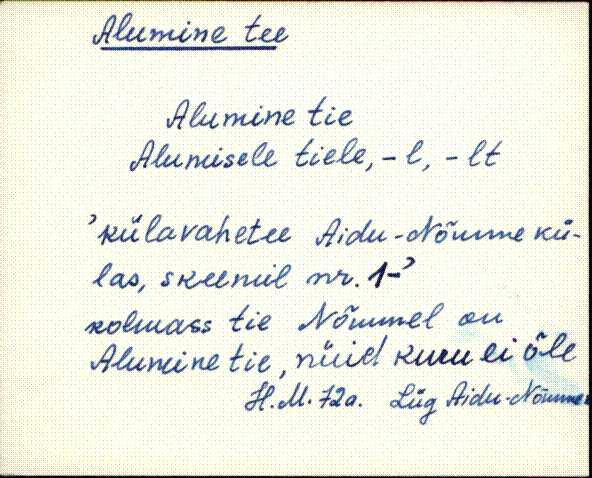 Alumine tee
Alumine tie
Alumisele tiele, -l, -lt
'külavahetee Aidu-Nõmme kü-
las, skeemil nr. 1-'
kolmass tie Nõmmel on
Alumine tie, nüid kuru ei õle
H.M. 72a. Lüg Aidu-Nõmme